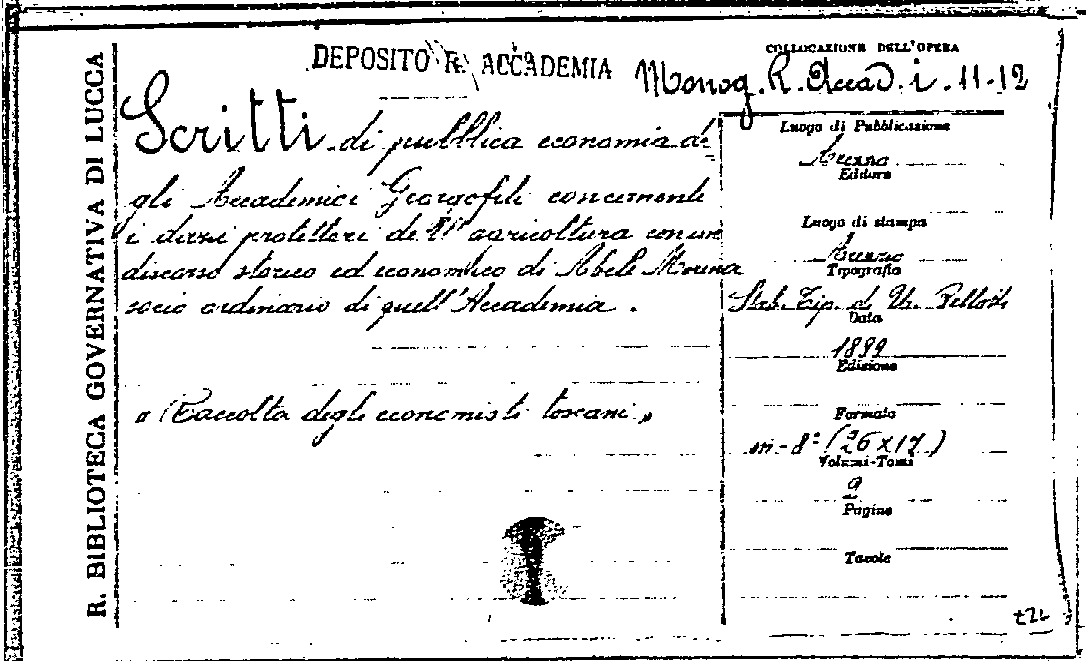 DEPOSITO R. ACCADEMIA
COLLOCAZIONE DELL'OPERA
Monog. R. Accad. i. 11-12
R. BIBLIOTECA GOVERNATIVA DI LUCCA
Scritti di pubblica economia de
gli Accademici Georgofili concernenti
i dazi protettori dell'agricoltura con un
discorso storico ed economico di Abele Morena
socio ordinario di quell'Accademia.
« Raccolta degli economisti toscani »
Luogo di Pubblicazione
Arezzo
Editore
Luogo di stampa
Arezzo
Tipografia
Stab. Tip. di
Data
1899
Edizione
Formato
in-8° (26 x 17)
Volumi-Tomi
2
Pagine
Tavole